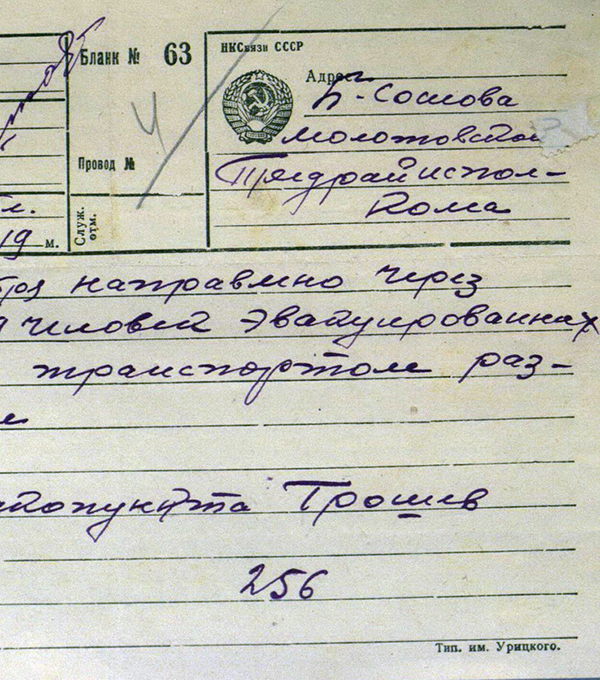 Бланк № 63
4
Провод №
Служ. отм.
19 м.
НКСвязи СССР
Адрес
Б-Соснова
Молотовской
Предрайиспол-
кома
направлено через
человек эвакуированных
транспортом раз-
Трошев
256
Тип. им. Урицкого.